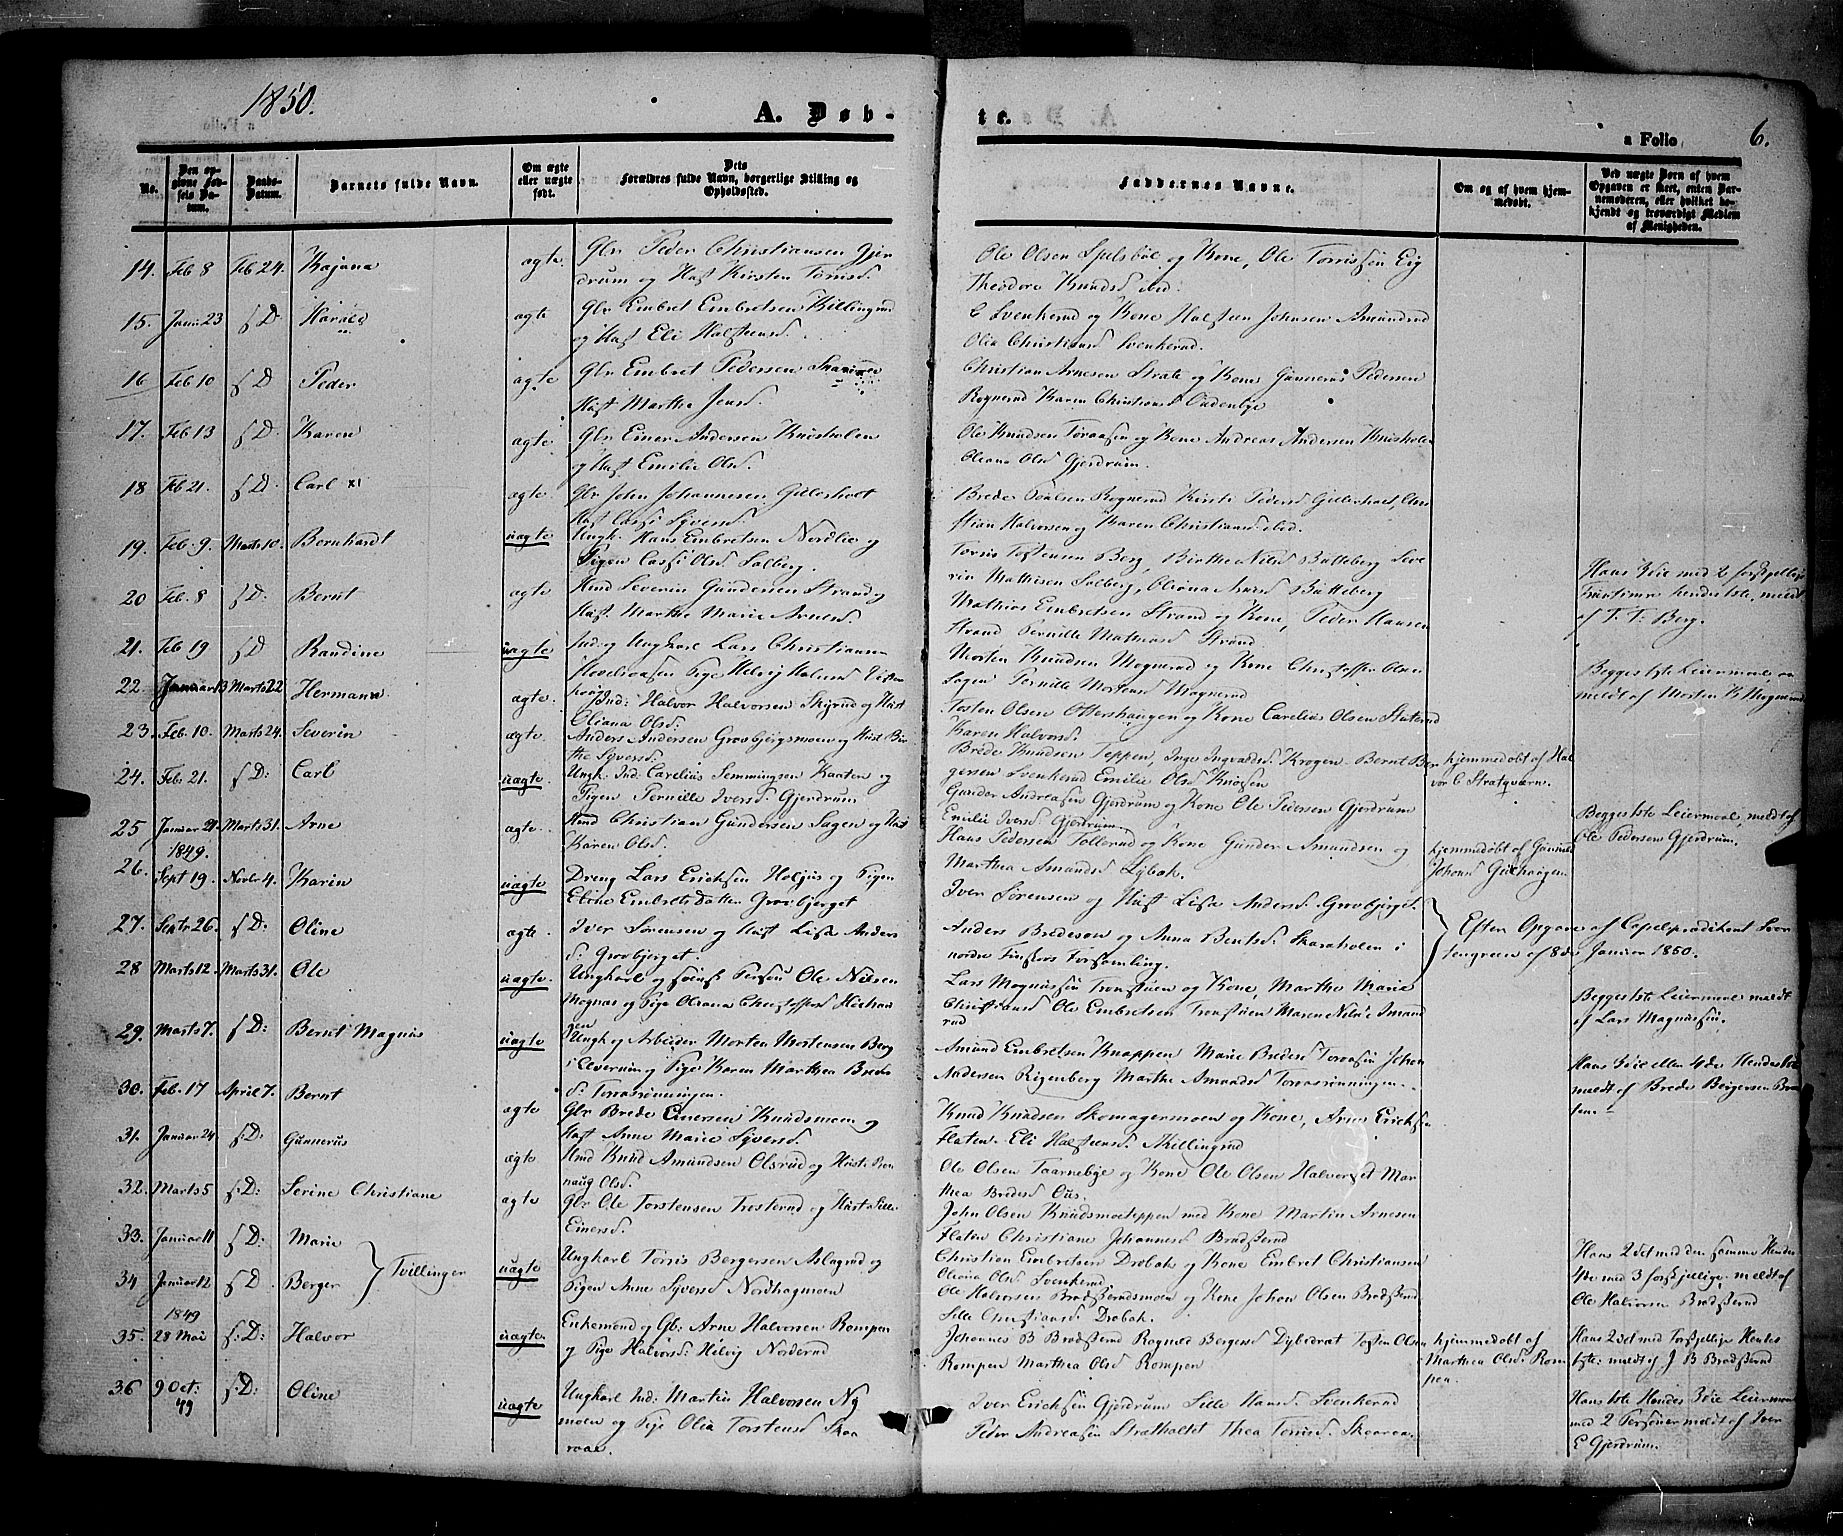 1850.
A. Døb-
te.
a Folio
6.
No.
Den opgivne Fødsels Datum.
Daabs-Datum.
Barnets fulde Navn.
Om ægte eller uægte født.
Dets Forældres fulde Navn, borgerlige Stilling og Opholdssted.
Faddernes Navne.
Om og af hvem hjemmedøbt.
Ved uægte Børn af hvem Opgaven er skeet, enten Barnemoderen, eller hvilket bekjendt og troværdigt Medlem af Menigheden.
14. Feb 8 Feb 24. Kajana ægte Gbr Peder Christiansen Gjerdrum og Hust Kirsten Tørrisd.
Ole Olsen Spelsböl og Kone, Ole Torrissen Eig Theodora Knudsd ibid:
15. Janu 23 s D: Harald ægte Gbr Embret Embretsen Killingrud og Hust Eli Halsteensd.
E Svenkerud og Kone Halsteen Johnsen Amundrud Olia Christiansd Svenkerud.
16 Feb 10 s D Peder ægte Gbr Embret Pedersen Hust Martha Jensd.
Christian Arnesen Strate og Kone Gunnerus Pedersen Rognerud Karen Christiansd
17. Feb 13 s D. Karen ægte Gbr Einar Andersen Knusholen og Hust Emilie Olsd.
Ole Knudsen Toraasen og Kone Andreas Andersen Knusholen Oleana Olsd Gjerdrum.
18 Feb 21. s D. Carl ægte Gbr John Johannesen Gillesholt Hust Cassi Syversd.
Brede Rognerud Kirsti Pedersd Gillesholt, Christian Halvorsen og Karen Christiansd ibid.
19. Feb. 9. Marts 10. Bernhardt uægte Ungk. Hans Embretsen Nordlie og Pigen Cassi Olsd Solberg.
Torris Tostensen Berg, Birthe Nilsd Butteberg Severin Mathisen Solberg, Oleana Arnesd Butteberg
Hans 3die med 2 forskjellige Fruentimre hendes 1ste, meldt af T. T. Berg.
20 Feb. 8 s D: Bernt ægte Hmd Severin Gundersen Strand og Hust Marthe Marie Arnesd.
Mathias Embretsen Strand og Kone, Peder Hansen Strand Pernille Mathiasd Strand
21. Feb 19 s D Randine uægte Ind. og Ungkarl Lars Christiansen Pige Helvig Halvorsd
Morten Knudsen Mognerud og Kone Christoffer Olsen Sagen Pernille Mortensd Mognerud
Begges 1ste Leiermaal, anmeldt af Morten K Mognerud
22. Januar 13 Marts 22 Hermann ægte. Ind: Halvor Halvorsen Skyrud og Hust Oliana Olsd.
Tosten Olsen Ottershaugen og Kone Carelius Olsen Karen Halvorsd.
23. Feb. 10. Marts 24. Severin ægte. Anders Andersen Grovbjergsmoen og Hust Birthe Syversd.
Brede Knudsen Teppen, Inge Ingvaldsd. Krogen. Bernt Bergersen Svenkerud Emilie Olsd
hjemmedobt af Halvor C Stratqværn.
24. Feb: 21. s D: Carl uægte. Ungk. Ind: Carelius Semmingsen Kaaten og Pigen Pernille Iversd. Gjerdrum
Gunder Andreasen Gjerdrum og Kone Ole Pedersen Gjerdrum Emilie Iversd Gjerdrum.
Begges 1ste Leiermaal, meldt af Ole Pedersen Gjerdrum.
25 Januar 21. Marts 31. Arne ægte Hmd Christian Gundersen Sagen og Hust Karen Olsd.
Hans Pedersen Tollerud og Kone Gunder Amundsen og Marthea Amundsd Lybæk.
hjemmedobt af Gunnild Johansd
26. 1849. Sept 19. Novbr 4. Karin uægte Dreng Lars Ericksen Holjus og Pigen Eline Embrets Datter Grovbjerget
Iver Sørensen og Hust Lisa Andersd. Grovbjerget.
27. Septr 26. s D: Oline ægte. Iver Sørensen og Hust Lisa Anders d: Grovbjerget.
Anders Bredeson og Anna Bentsd. Skaraholen i nordre Finskog Forsamling.
Efter Opgave af Capelprædikant Sven af 8de Januar 1850.
28 Marts 12. Marts 31. Ole uægte. Ungkarl og Ole Nilsen Mognæs og Pige Oleana Christoffersd
Lars Magnussen Tronstuen og Kone, Martha Maria Christiansd Ole Embretsen Tronstuen Maren Nilsd Amundrud
Begges 1ste Leiermaal meldt af Lars Magnussen.
29. Marts 7. s D: Bernt Magnus uægte Ungk og Arbeider Morten Mortensen Berg i Elverum og Pige Karen Marthea Bredes d. Torraasrønningen.
Amund Embretsen Knappen Marie Bredesd Toraasen Johan Andersen Rigenberg Marthe Amundsd Torraasrønningen.
Hans 3die eller 4de Hendes meldt af Brede Bergersen
30. Feb. 17 April 7. Bernt ægte Gbr Brede Einersen Knudsmoen og Hust Anne Marie Syversd.
Knud Knudsen Skomagermoen og Kone, Arne Ericksen Flaten. Eli Halsteensd Killingrud
31. Januar 24 s: D: Gunnerus ægte Hmd Knud Amundsen Olsrud og Hust: Rønnaug Olsd.
Ole Olsen Taarnebye og Kone Ole Olsen Halvorsæt Marthea Bredesd Ous.
32. Marts 5 s: D: Serine Christiane ægte Gbr Ole Torstensen Trosterud og Hust Sille Einersd.
John Olsen Knudsmoeteppen med Kone Martin Arnesen Flaten Christiane Johannesd Braskerud
33. Januar 11 s D: Marie
34 Januar 12 s D: Berger
Tvillinger
uægte Ungkarl Torris Bergersen Aslagrud og Pigen Anne Syversd Nordhagmoen
Christian Embretsen Drobak og Kone Embret Christiansen Oleana Olsd Svenkerud
Ole Halvorsen Braskerudsmoen og Kone Johan Olsen Braskerud Sille Christiansd Drobak.
Hans 2det med den samme Hendes 4de med 3 forskjellige. meldt af Ole Halvorsen Braskerud
35. 1849 28 Mai s: D: Halvor uægte. Enkemand og Gb: Arne Halvorsen Rompen og Pige Halvorsd: Helvig Norderud
Johannes B Braskerud Ragnild Bergersd Dybedrat Tosten Olsen Rompen Marthea Olsd Rompen
hjemmedobt af Marthea Olsd. Rompen.
Hans 2det med Forskjellige Hendes 1ste: meldt af J B Braskerud
36 9 Oct: 49 s: D: Oline uægte Ungkarl Ind: Martin Halvorsen Nymoen og Pige Olea Torstensd Skaaraae.
Iver Ericksen Gjerdrum Sille Hansd. Svenkerud Peder Andreasen Stratholtet Thea Torrisd. Skaaraa.
Hans 1ste Hendes 3die Leiermaal med 2 Personer meldt af Iver E Gjerdrum.